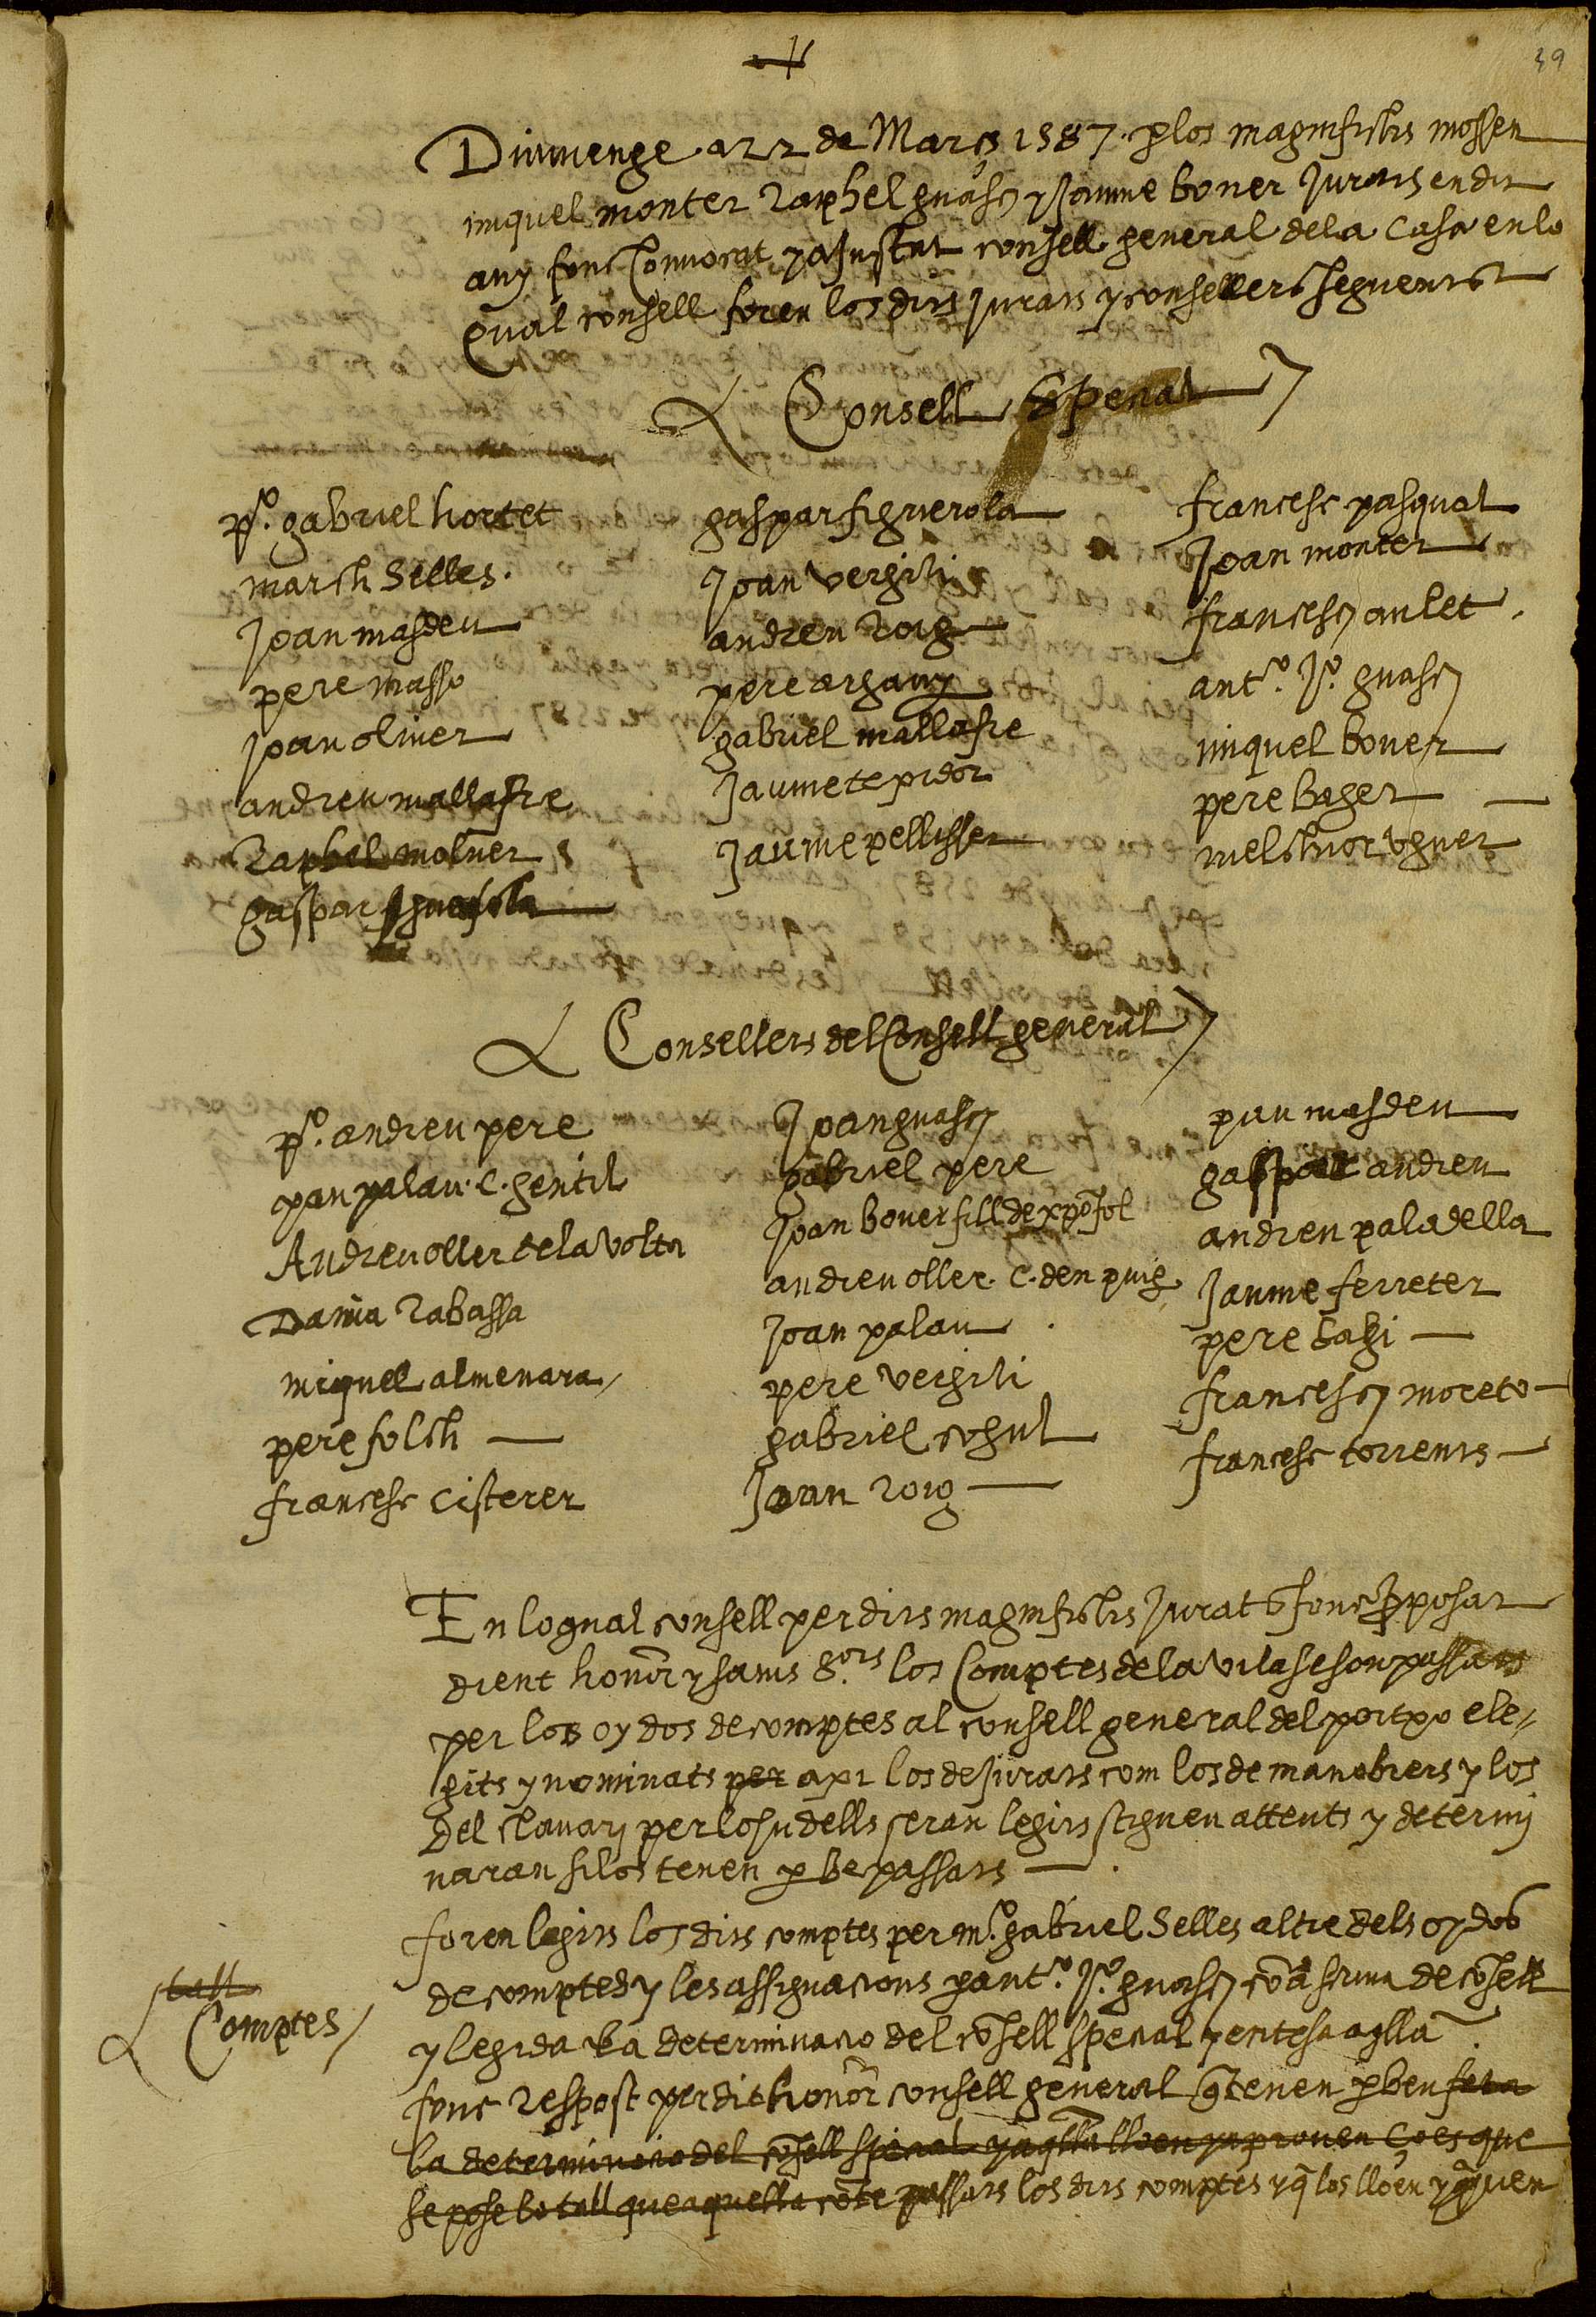 39
Diumenge a 22 de Març 1587 per los magnifichs mossen
miquel monter Raphel guasch y Jaume bouer Jurats en dit
any fonc Conuocat y aJustat consell general de la Casa en lo
Qual consell foren los dits Jurats y consellers seguents
Consell Special
pº. gabriel hortet
march Selles.
Joan masdeu
pere masso
Joan oliuer
andreu mallafre
Raphel moliner
gaspar figuerola
gaspar figuerola
Joan vergili
andreu Roig
pere argany
gabriel mallafre
Jaume tepidor
Jaume pellisser
francesc pasqual
Joan monter
francesch aulet
antº. Jº. guasch
miquel bouer
pere bager
melchior vguer
Consellers del Consell general
pº. andreu pere
pau palau. C. gentil
Andreu oller de la Volta
Damia Rabassa
miquel almenara
pere folch
francesc Cisterer
Joan guasch
gabriel pere
Joan bouer fill de xpōfol
andreu oller. C. den puig
Joan palau
pere vergili
gabriel cogul
Joan Roig
pau masdeu
gaspar andreu
andreu paladella
Jaume ferreter
pere bagi
francesch moreto
francesc torrents
En lo qual consell per dits magnifichs Jurats fonc pposat
dient honor y sauis Sors los Comptes de la vila se son passats
per los oydos de comptes al consell general del portxo ele-
gits y nominats per axi los de Jurats com los de manobrers y los
del clauary per losu dells seran legits stiguen attents y determi
naran si los tenen p be passats
foren legits los dits comptes per mº. gabriel Selles altre dels oydos
de comptes y les assignacions p antº. Jº. guasch com a scriua de cōsell
y legida la determinacio del cōsell special y entesa aqlla
fonc Respost per dit honor consell general q tenen p ben feta
la determinacio del cōsell special y aqlla lloen y aprouen ço es que
se pose lo tall que aquella cōte passats los dits comptes y q los lloen y aprouen
tall
Comptes